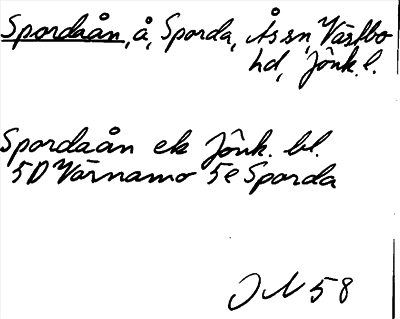 Spordaån, å, Sporda, Ås sn, Västbo
hd, Jönk. l.
Spordaån ek Jönk. bl.
5D Värnamo 5e Sporda
JN 58